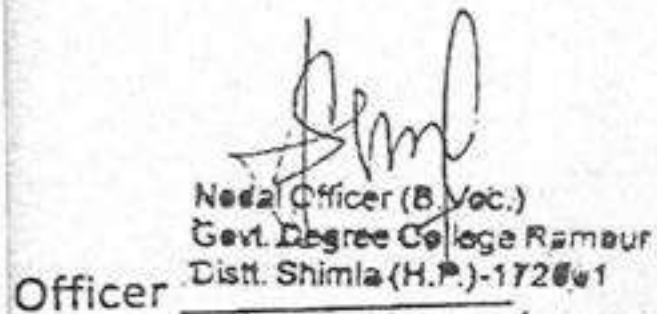 Nodal Officer (B.Voc.)
Govt. Degree College Rampur
Distt. Shimla (H.P.)-172001
Officer